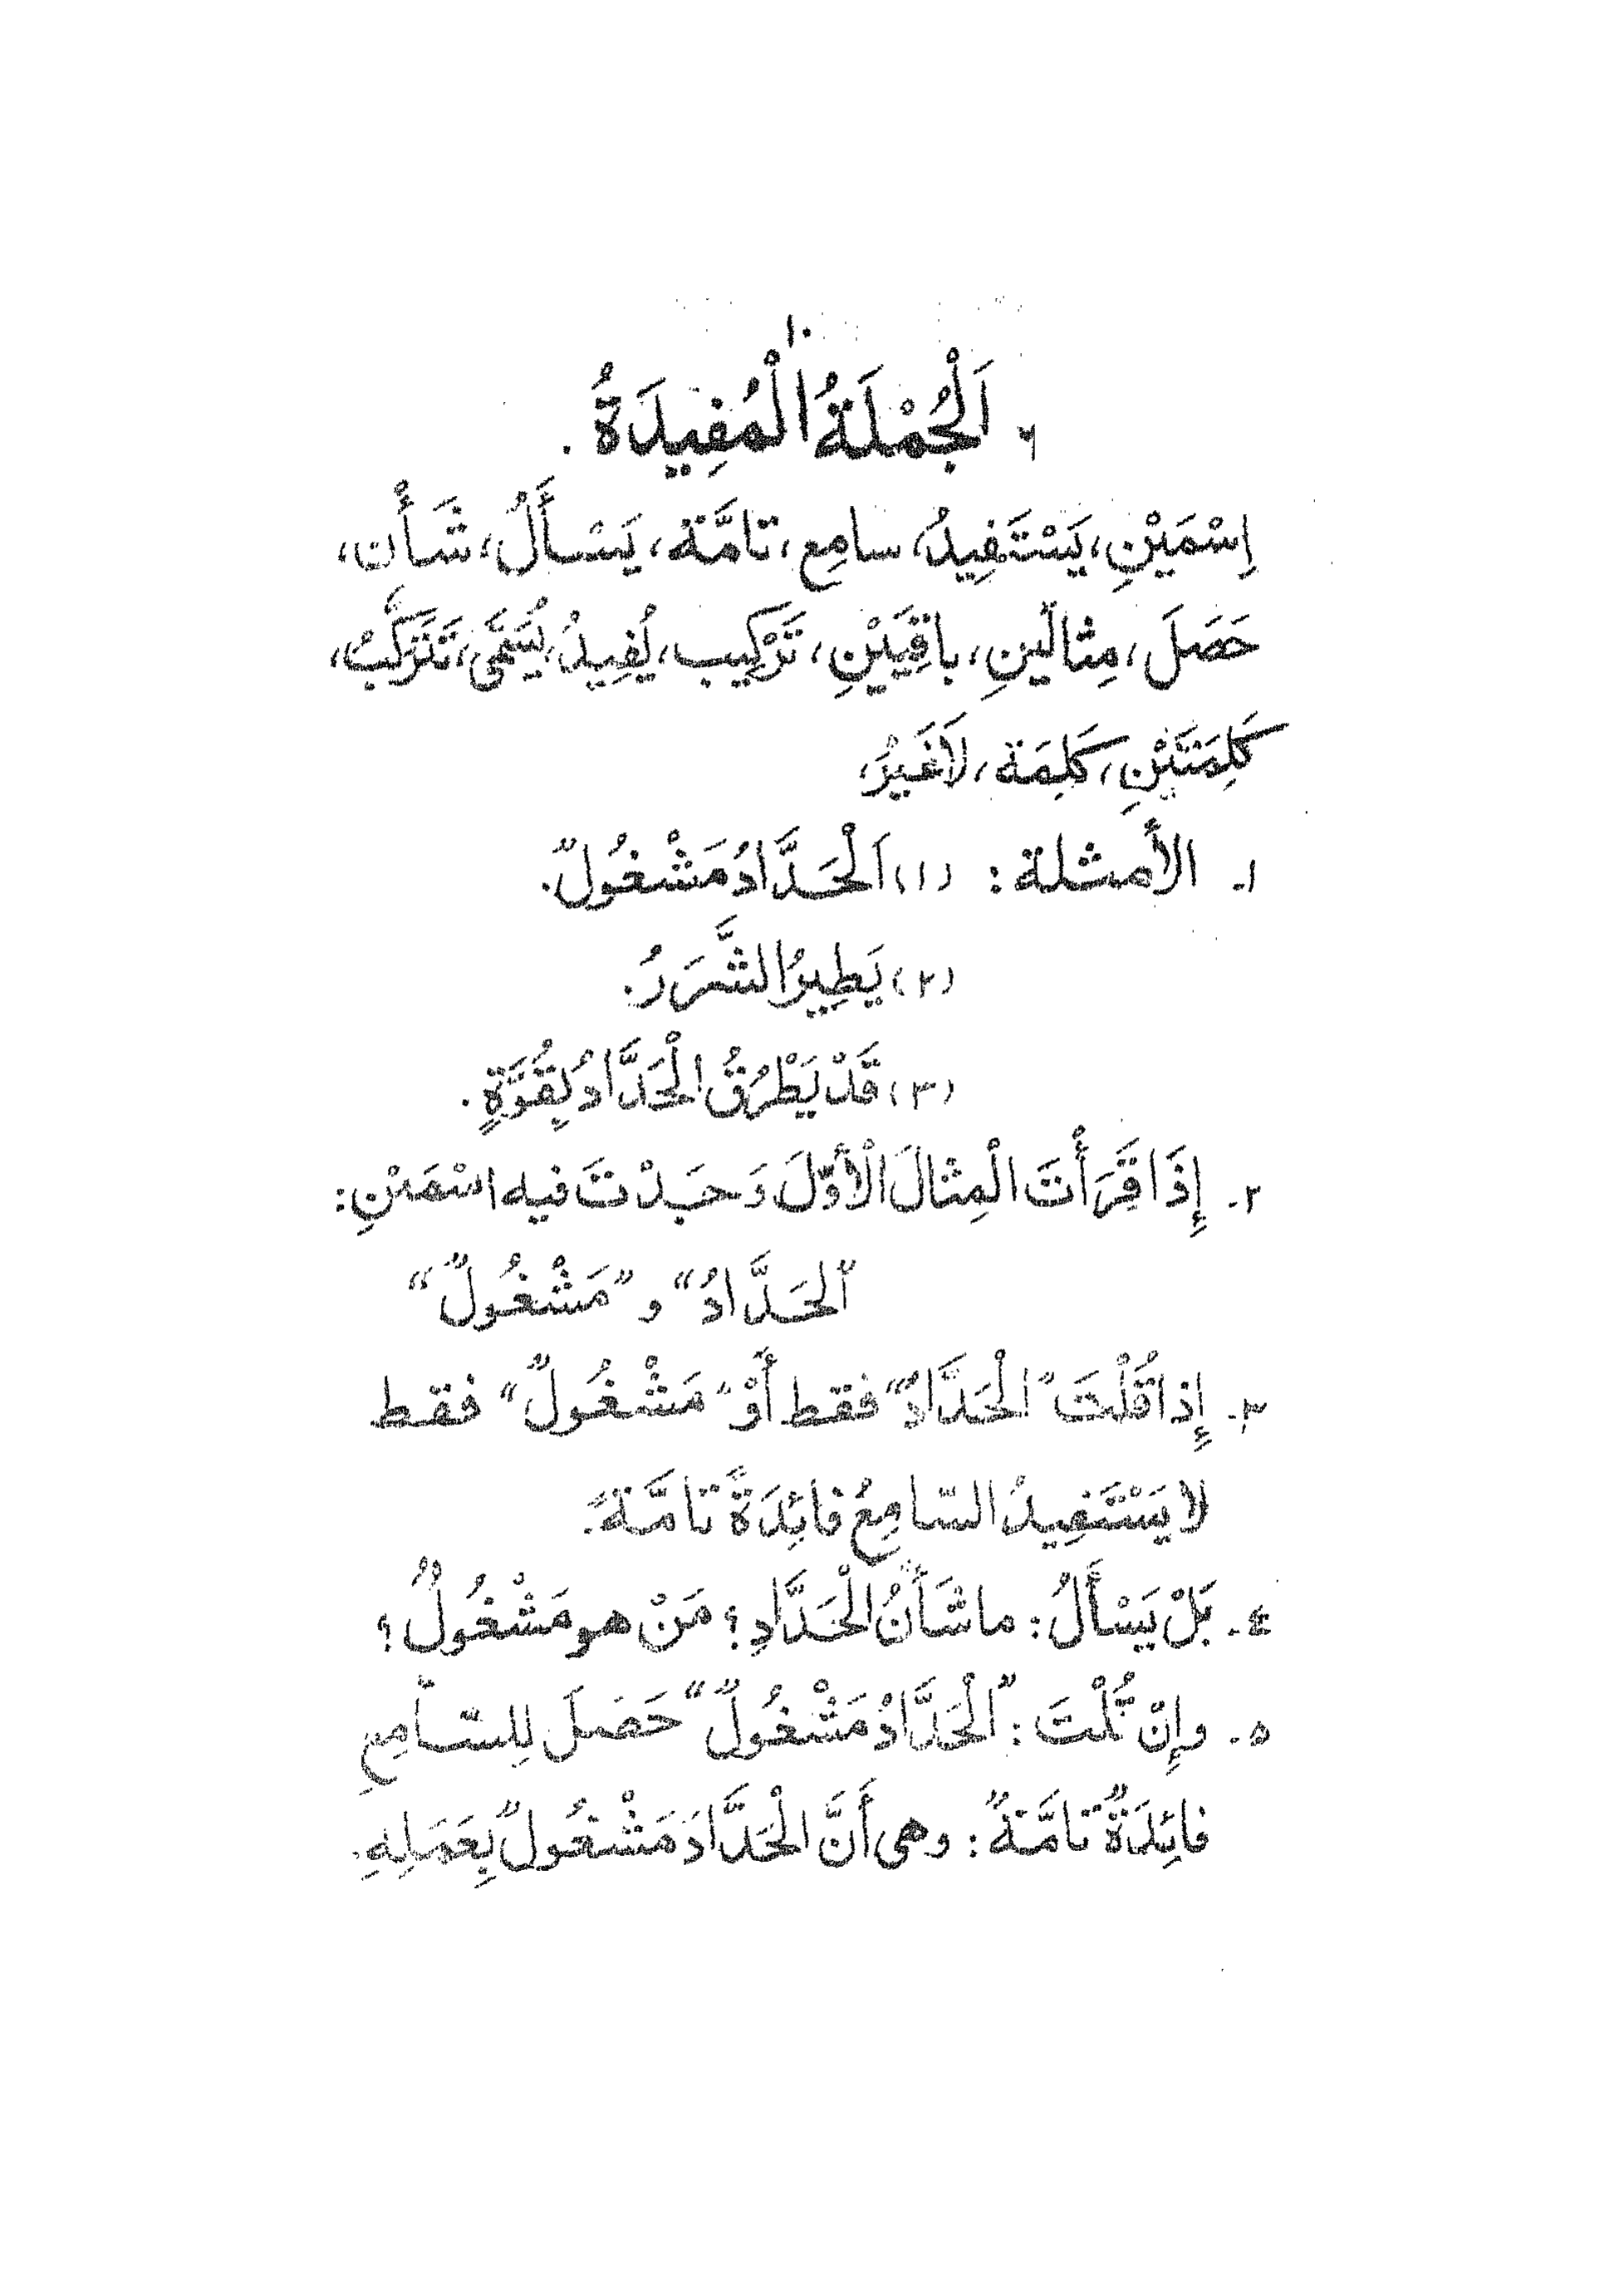 ١٠
٢. اَلْجُمْلَةُ الْمُفِيدَةُ.
اِسْمَيْنِ، يَسْتَفِيدُ، سامِع، تامَّة، يَسْأَلُ، شَأْن،
حَصَلَ، مِثالَينِ، باقِيَيْنِ، تَرْكِيب، يُفِيدُ، يُسَمَّى، تَتَرَكَّبُ،
كَلِمَتَيْنِ، كَلِمَة، لاَغَيْرُ،
١- الأَمثلة: (١) اَلْحَدَّادُ مَشْغُولٌ.
(٢) يَطِيرُ الشَّرَرُ.
(٣) قَدْ يَطْرُقُ الْحَدَّادُ بِقُوَّةٍ.
٢- إِذَا قَرَأْتَ الْمِثالَ الْأَوَّلَ وَجَدْتَ فيه اسْمَيْنِ:
"الحَدَّادُ" و "مَشْغُولٌ"
٣- إِذا قُلْتَ "الْحَدَّادُ" فقط أَوْ "مَشْغُولٌ" فقط
لا يَسْتَفِيدُ السّامِعُ فائِدَةً تامَّةً.
٤- بَلْ يَسْأَلُ: ما شَأْنُ الْحَدَّادِ؟ مَنْ هو مَشْغُولٌ؟
٥- وإِنْ قُلْتَ: "الْحَدَّادُ مَشْغُولٌ" حَصَلَ لِلسّامِعِ
فائِدَةٌ تامَّةٌ: وهى أَنَّ الْحَدَّادَ مَشْغُولٌ بِعَمَلِهِ.